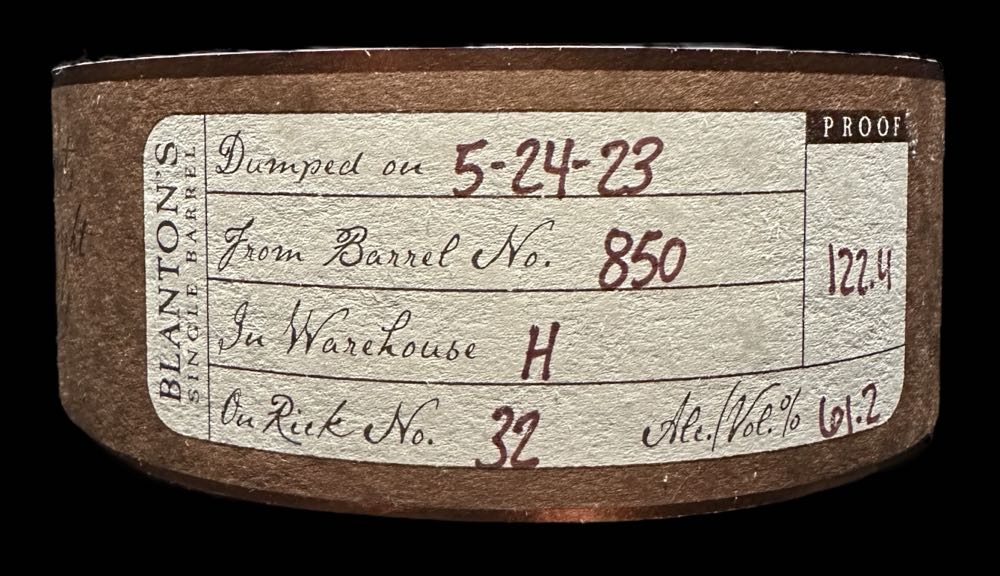 BLANTON'S
SINGLE BARREL
Dumped on 5-24-23
PROOF
122.4
From Barrel No. 850
In Warehouse H
On Rick No. 32
Alc./Vol.% 61.2